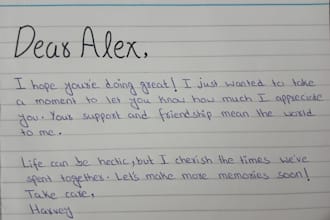 Dear Alex,
I hope you're doing great! I just wanted to take
a moment to let you know how much I appreciate
you. Your support and friendship mean the world
to me.
Life can be hectic, but I cherish the times we've
spent together. Let's make more memories soon!
Take care,
Harvey